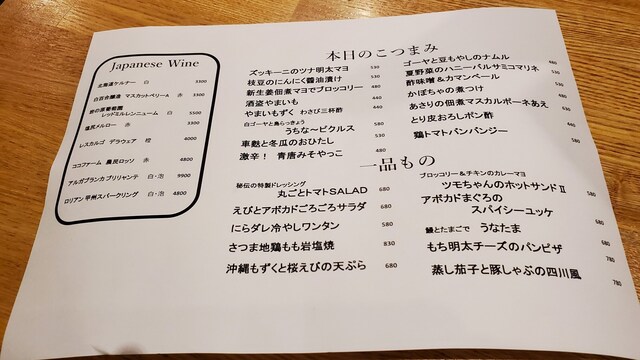 Japanese Wine
北海道ケルナー 白 3300
白百合醸造 マスカットベリーA 赤 3300
岩の原葡萄園
レッドミルレンニューム 白 5500
塩尻メルロー 赤 3300
レスカルゴ デラウェア 橙 4000
ココファーム 農民ロッソ 赤 4800
アルガブランカ ブリリャンテ 白・泡 9900
ロリアン 甲州スパークリング 白・泡 4800
本日のこつまみ
ズッキーニのツナ明太マヨ 530
枝豆のにんにく醤油漬け 430
新生姜佃煮マヨでブロッコリー 480
酒盗やまいも 440
やまいもずく わさび三杯酢 440
白ゴーヤと島らっきょう
うちな〜ピクルス 580
車麩と冬瓜のおひたし 530
激辛! 青唐みそやっこ 480
ゴーヤと豆もやしのナムル 480
夏野菜のハニーバルサミコマリネ 530
酢味噌&カマンベール 530
かぼちゃの煮つけ
あさりの佃煮マスカルポーネあえ 530
とり皮おろしポン酢 440
鶏トマトバンバンジー 580
一品もの
秘伝の特製ドレッシング
丸ごとトマトSALAD 680
えびとアボカドごろごろサラダ 680
にらダレ冷やしワンタン 580
さつま地鶏もも岩塩焼 830
沖縄もずくと桜えびの天ぷら 680
ブロッコリー&チキンのカレーマヨ
ツモちゃんのホットサンドⅡ 580
アボカドまぐろの
スパイシーユッケ
鰻とたまごで うなたま 680
もち明太チーズのパンピザ 780
蒸し茄子と豚しゃぶの四川風 780